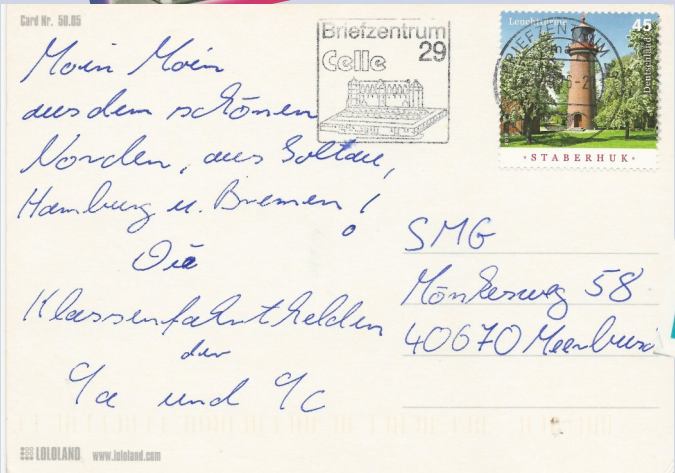 Card Nr. 50.05
Briefzentrum
29
Celle
Leuchttürme
45
Deutschland
BRIEFZENTRUM
·STABERHUK·
Moin Moin
aus dem schönen
Norden, aus Soltau,
Hamburg u. Bremen!
Die
Klassenfahrthelden
der
9a und 9c
SMG
Mönkesweg 58
40670 Meerbusch
LOLOLAND www.lololand.com